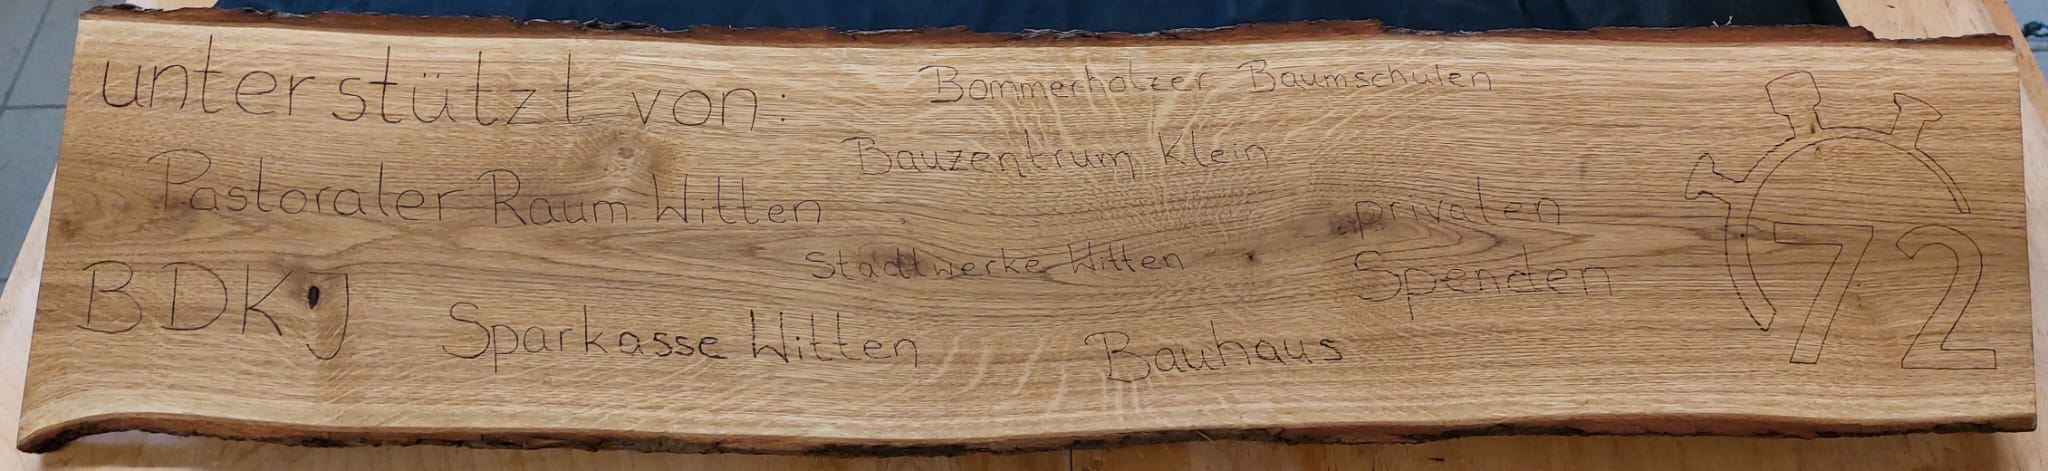 unterstützt von:
Bommerholzer Baumschulen
Bauzentrum Klein
Pastoraler Raum Witten
privaten
Spenden
Stadtwerke Witten
BDKJ
Sparkasse Witten
Bauhaus
72